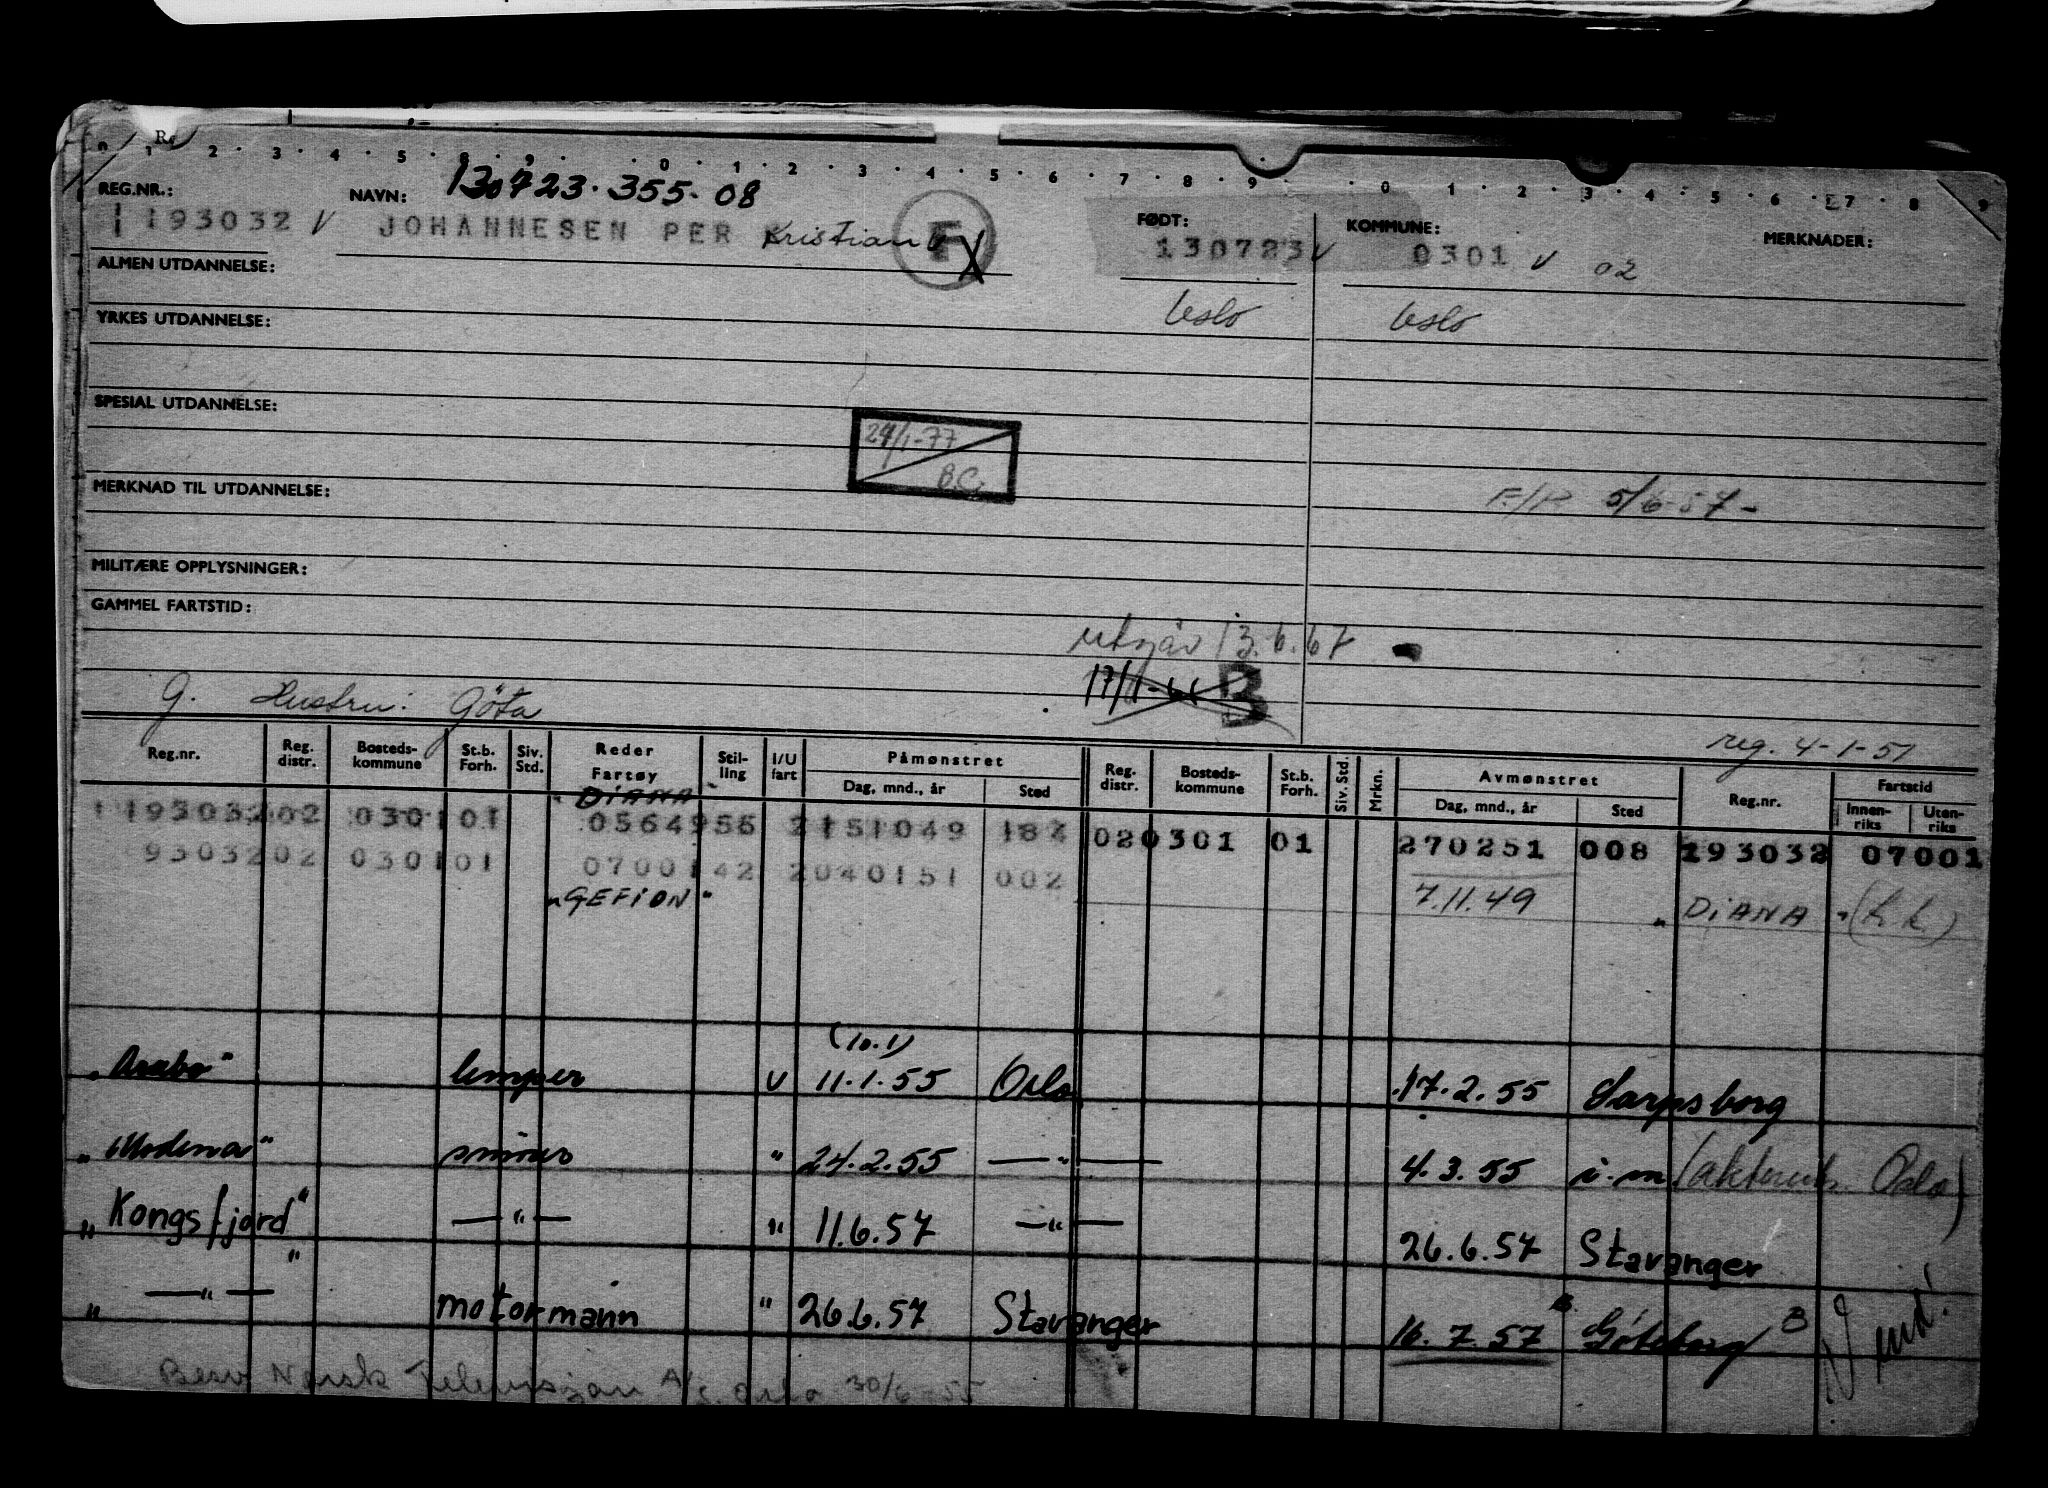 0 1 2 3 4 5 8 9 0 1 2 3 4 5 6 7 8 9 0 1 2 3 4 5 6 7 8 9
REG.NR.: NAVN: 130723.355-08 FØDT: KOMMUNE: MERKNADER:
1193032 V JOHANNESEN PER Kristian F 130723 V 0301 V 02
ALMEN UTDANNELSE:
Oslo Oslo
YRKES UTDANNELSE:
SPESIAL UTDANNELSE:
24/1-77
B.C.
MERKNAD TIL UTDANNELSE:
5/6-57-
MILITÆRE OPPLYSNINGER:
GAMMEL FARTSTID:
13.6.67
17/1- B
G. Hustru: Göta
reg. 4-1-51
Reg.nr. Reg. distr. Bosteds-kommune St.b. Forh. Siv. Std. Reder Fartøy Stil-ling I/U fart Påmønstret Dag, mnd., år Sted Reg. distr. Bosteds-kommune St.b. Forh. Siv. Std. Mrkn. Avmønstret Dag, mnd., år Sted Reg.nr. Fartstid Innen-riks Uten-riks
"DIANA"
1193032 02 0301 01 0564955 2 151049 184 02 0301 01 270251 008 193032 07001
93032 02 0301 01 0700142 2 040151 002
"GEFION" 7.11.49 "DIANA"
(10.1)
lemper U 11.1.55 Oslo 17.2.55 Sarpsborg
"Modena" smører " 24.2.55 —"— 4.3.55 i.m Oslo)
"Kongsfjord" —"— " 11.6.57 —"— 26.6.57 Stavanger
" —"— " motormann " 26.6.57 Stavanger 16.7.57 Göteborg B Vend!
Norsk A/S. Oslo 30/6-55